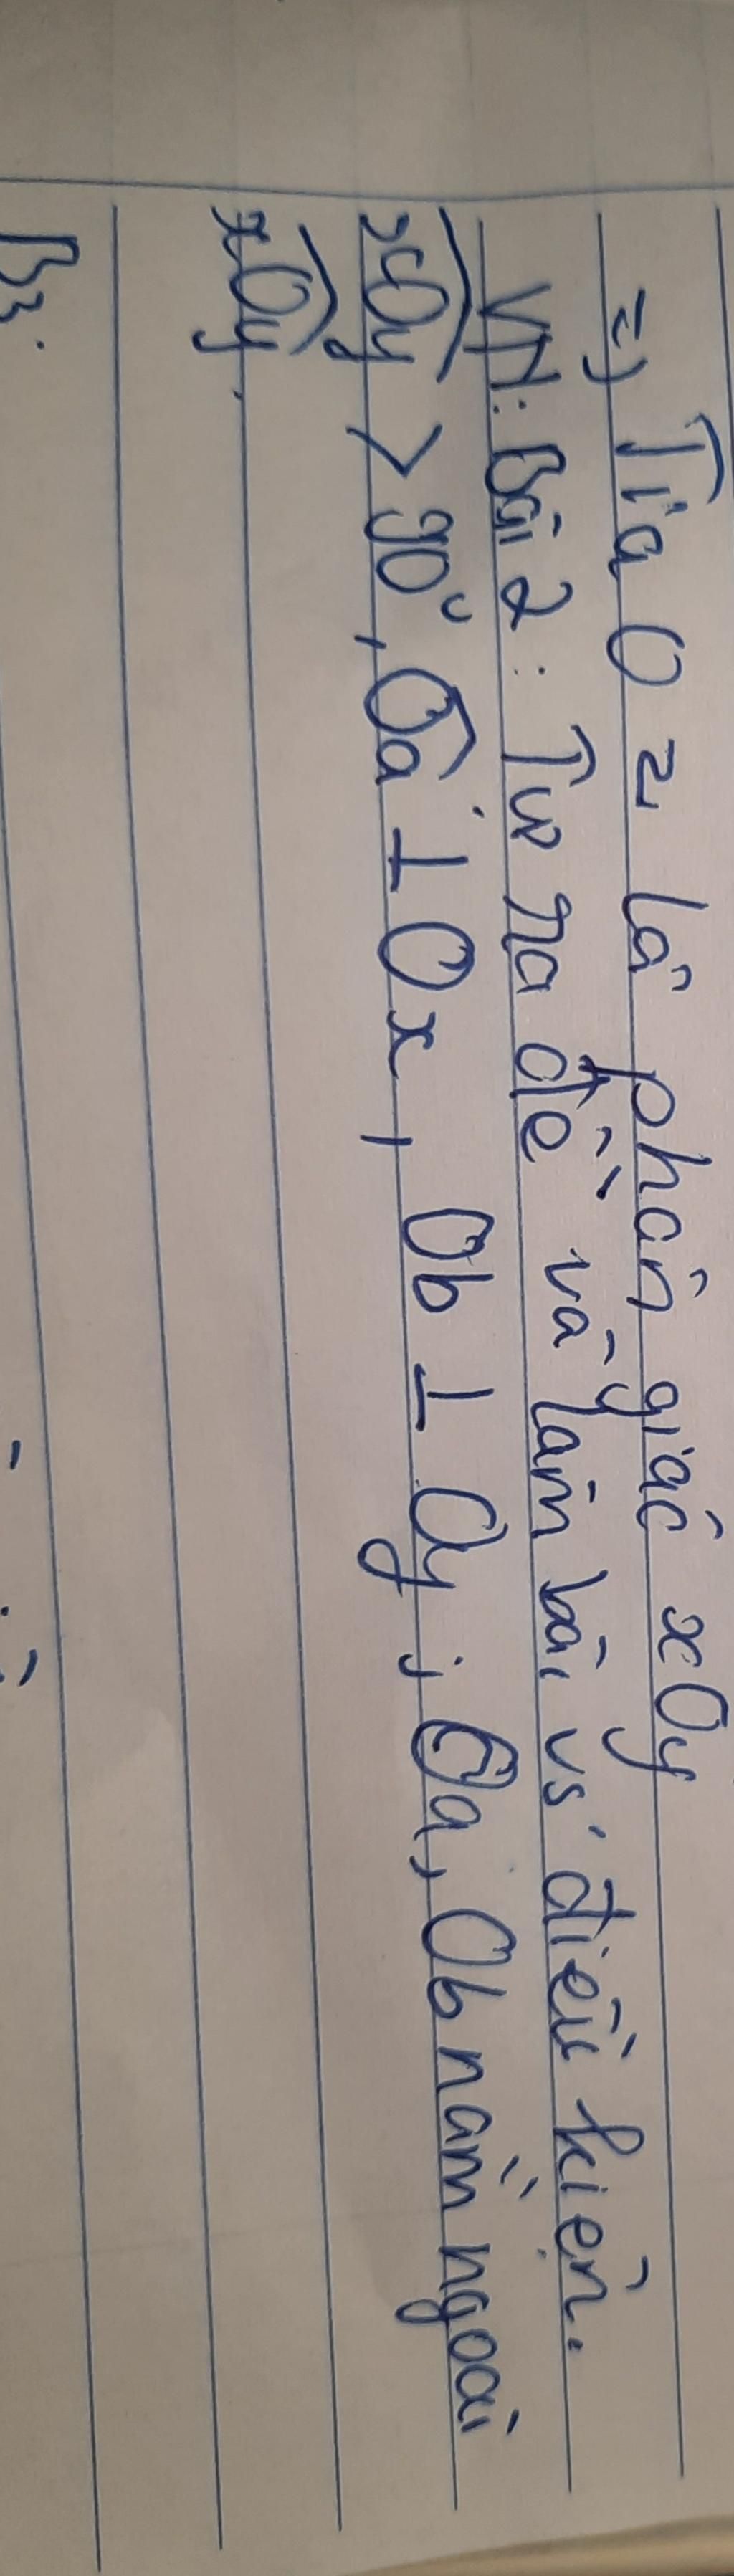 =) Tia Oz là phân giác xOy
VN: Bài 2: Tự ra đề và làm bài vs điều kiện.
xOy > 90°, Oa ⊥ Ox, Ob ⊥ Oy; Oa, Ob nằm ngoài
xOy.